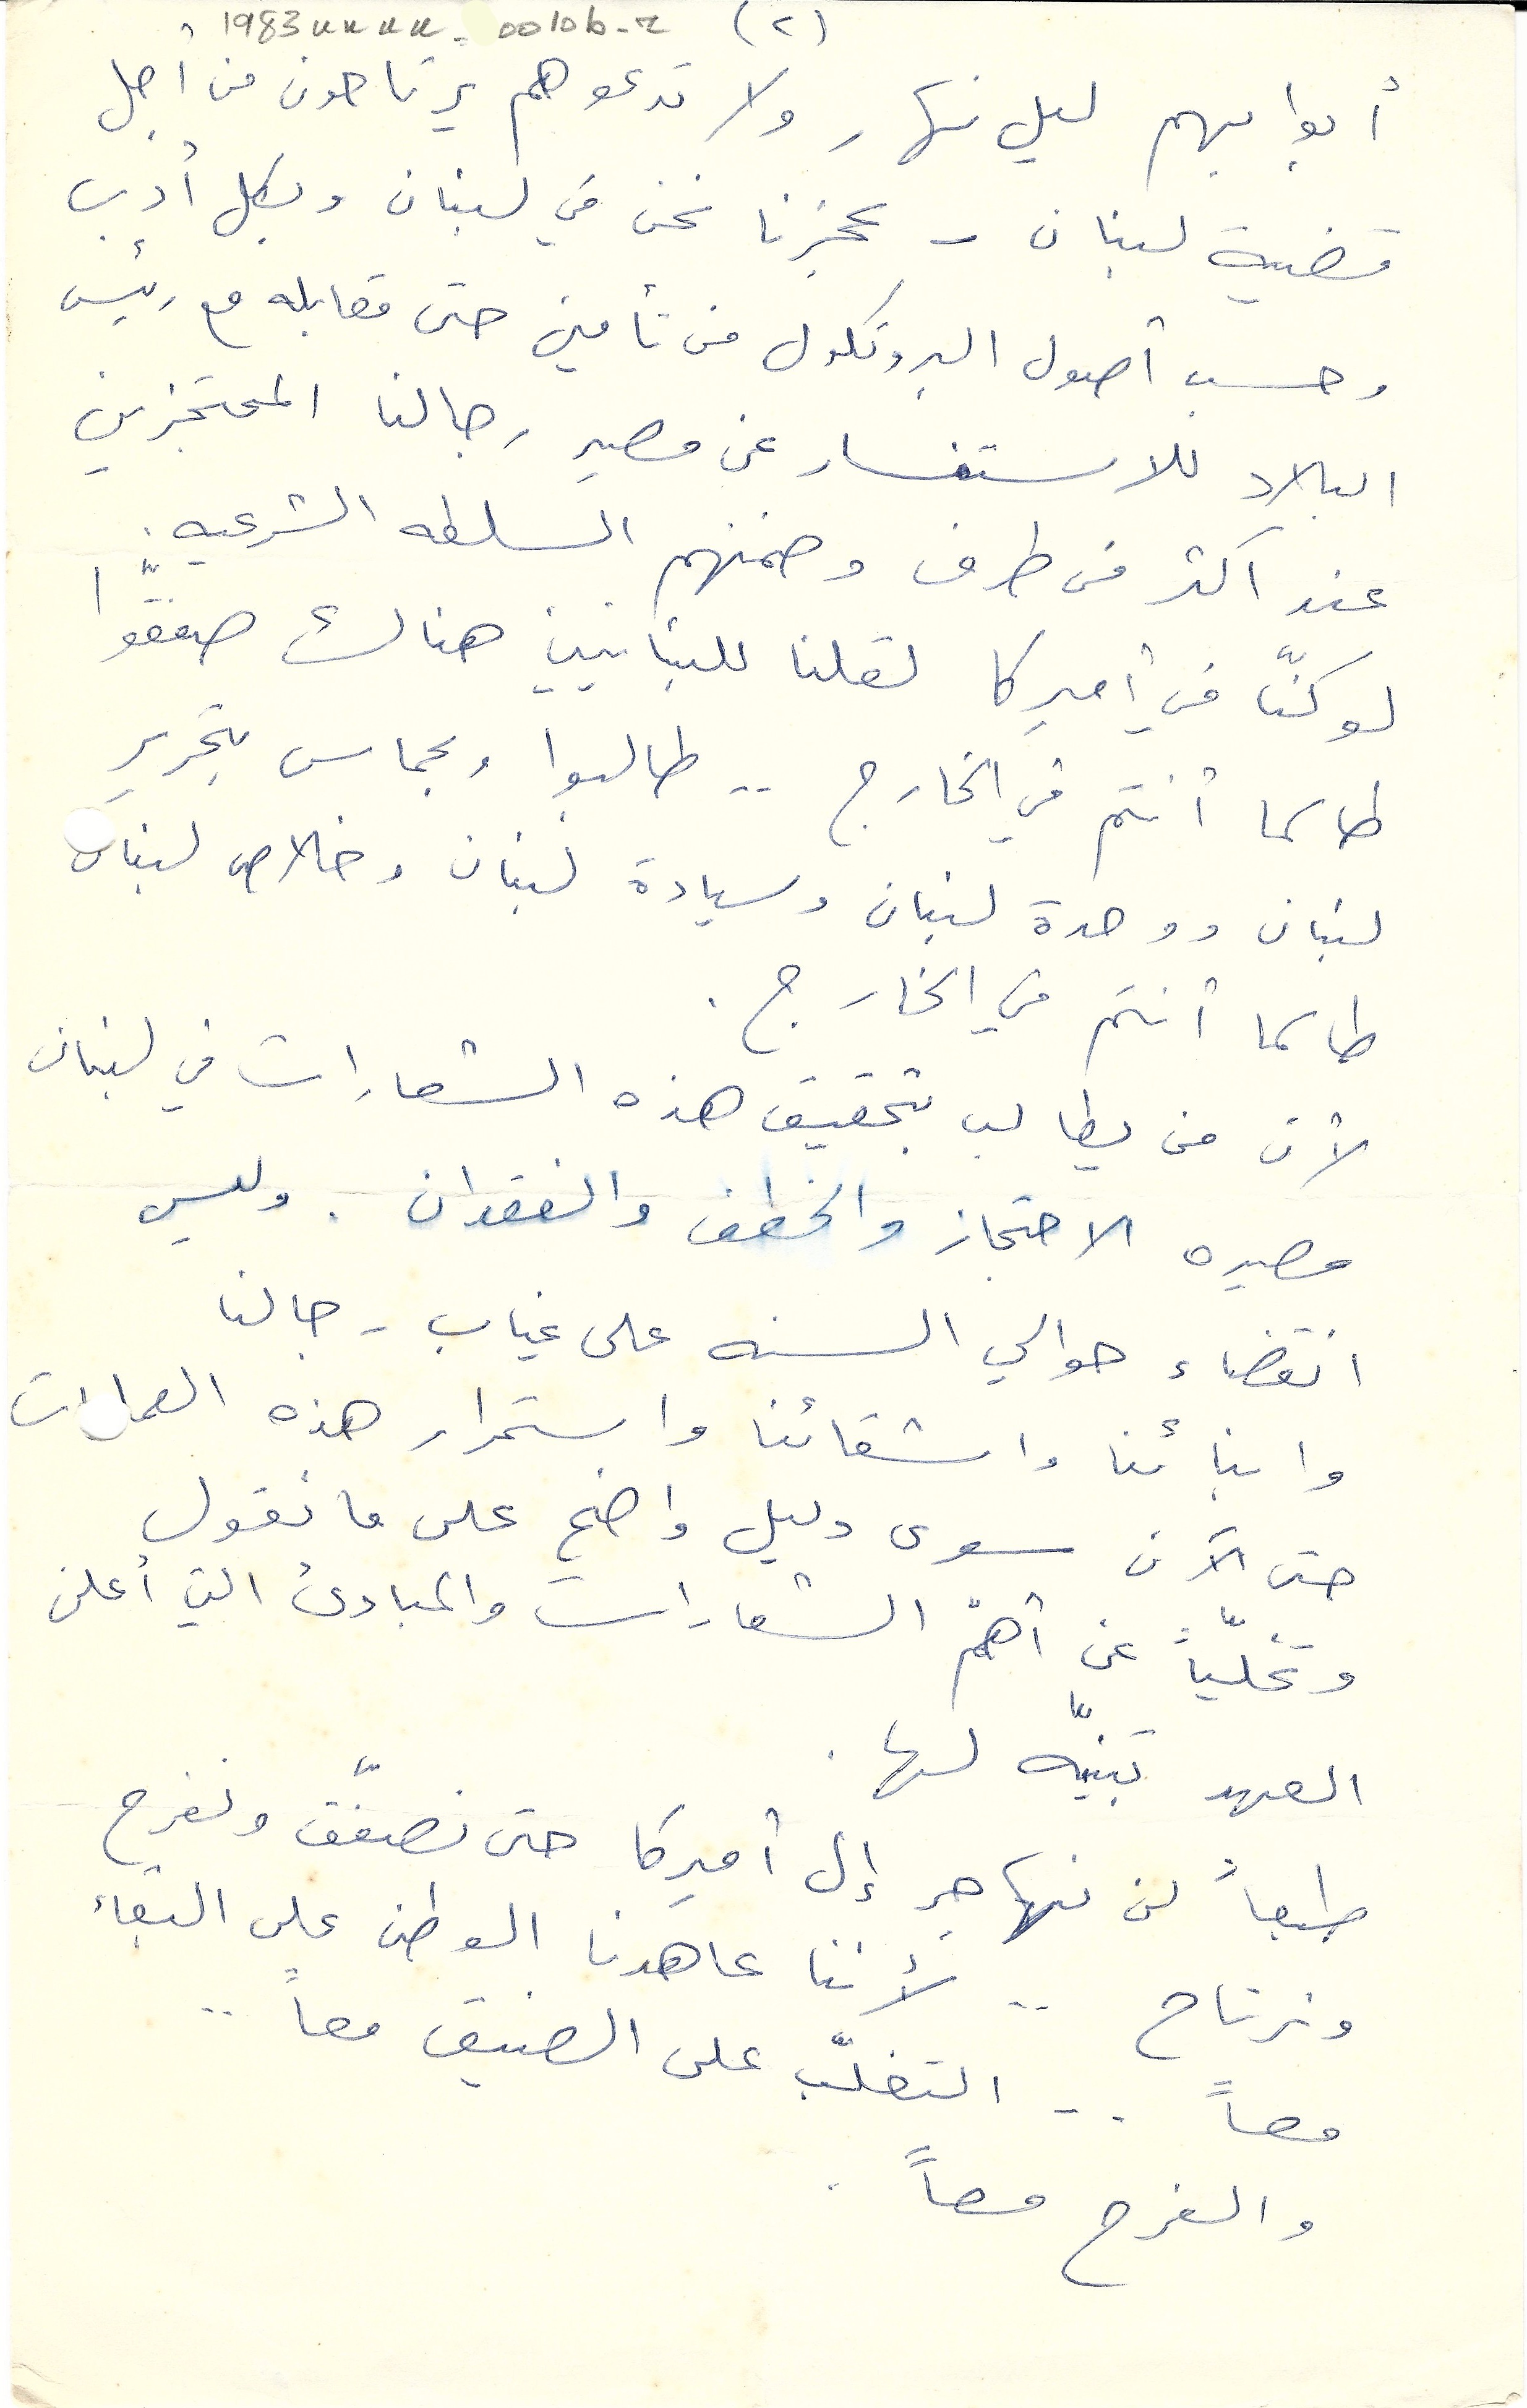 1983xxxx_0010b-r (٢)
أبوابهم ليل نهار ولا تدعوهم يرتاحون من أجل
قضية لبنان - عجزنا نحن في لبنان وبكل أدب
وحسب أصول البروتكول من تأمين حتى مقابله مع رئيس
البلاد للاستفسار عن مصير رجالنا المحتجزين
عند أكثر من طرف وضمنهم السلطه الشرعيه.
لو كنّا في أميركا لقلنا للبنانيين هناك صفّقوا
طالما أنتم في الخارج .. طالبوا وبحماس بتحرير
لبنان ووحدة لبنان وسيادة لبنان وخلاص لبنان
طالما أنتم في الخارج.
لأن من يطالب بتحقيق هذه الشعارات في لبنان
مصيره الاحتجاز والخطف والفقدان. وليس
انقضاء حوالي السنه على غياب رجالنا
وابنائنا واشقائنا واستمرار هذه
حتى الآن سوى دليل واضح على ما نقول
وتخلّياً عن أهمّ الشعارات والمبادئ التي أعلن
العهد تبنيّه لها.
طبعاً لن نهاجر إلى أميركا حتى نصفّق ونفرح
ونرتاح .. لأننا عاهدنا الوطن على البقاء
معاً .. التغلّب على الضيق معاً ..
والفرح معاً.